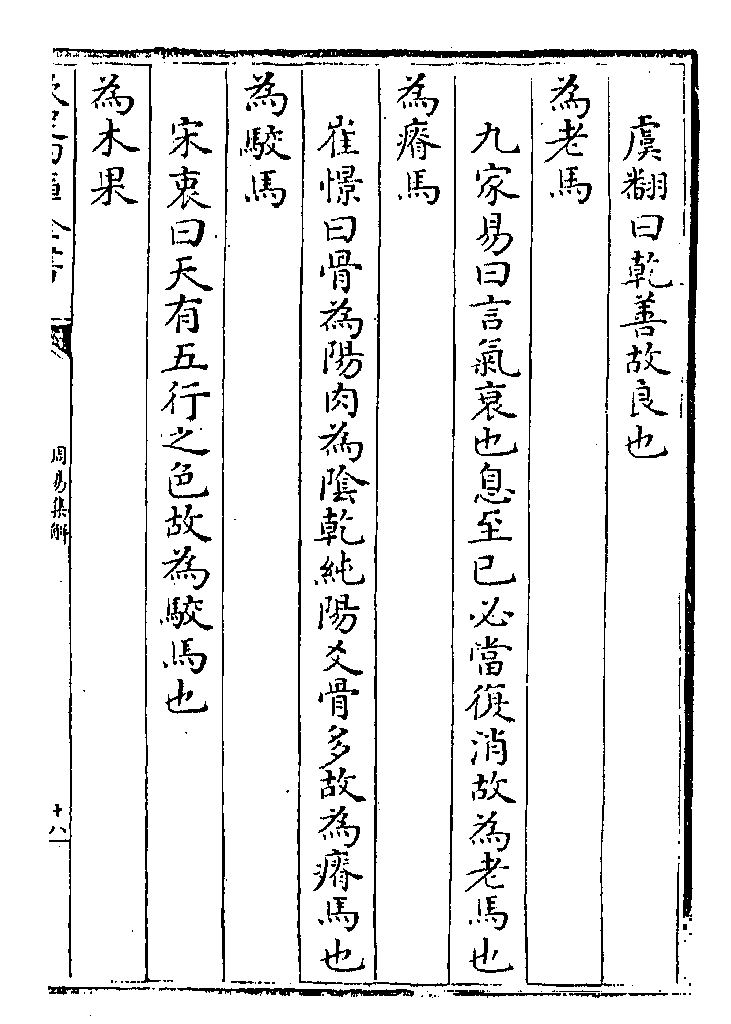 虞翻曰乾善故良也
為老馬
九家易曰言氣衰也息至巳必當復消故為老馬也
為瘠馬
崔憬曰骨為陽肉為陰乾純陽爻骨多故為瘠馬也
為駮馬
宋衷曰天有五行之色故為駮馬也
為木果
周易集解
十八